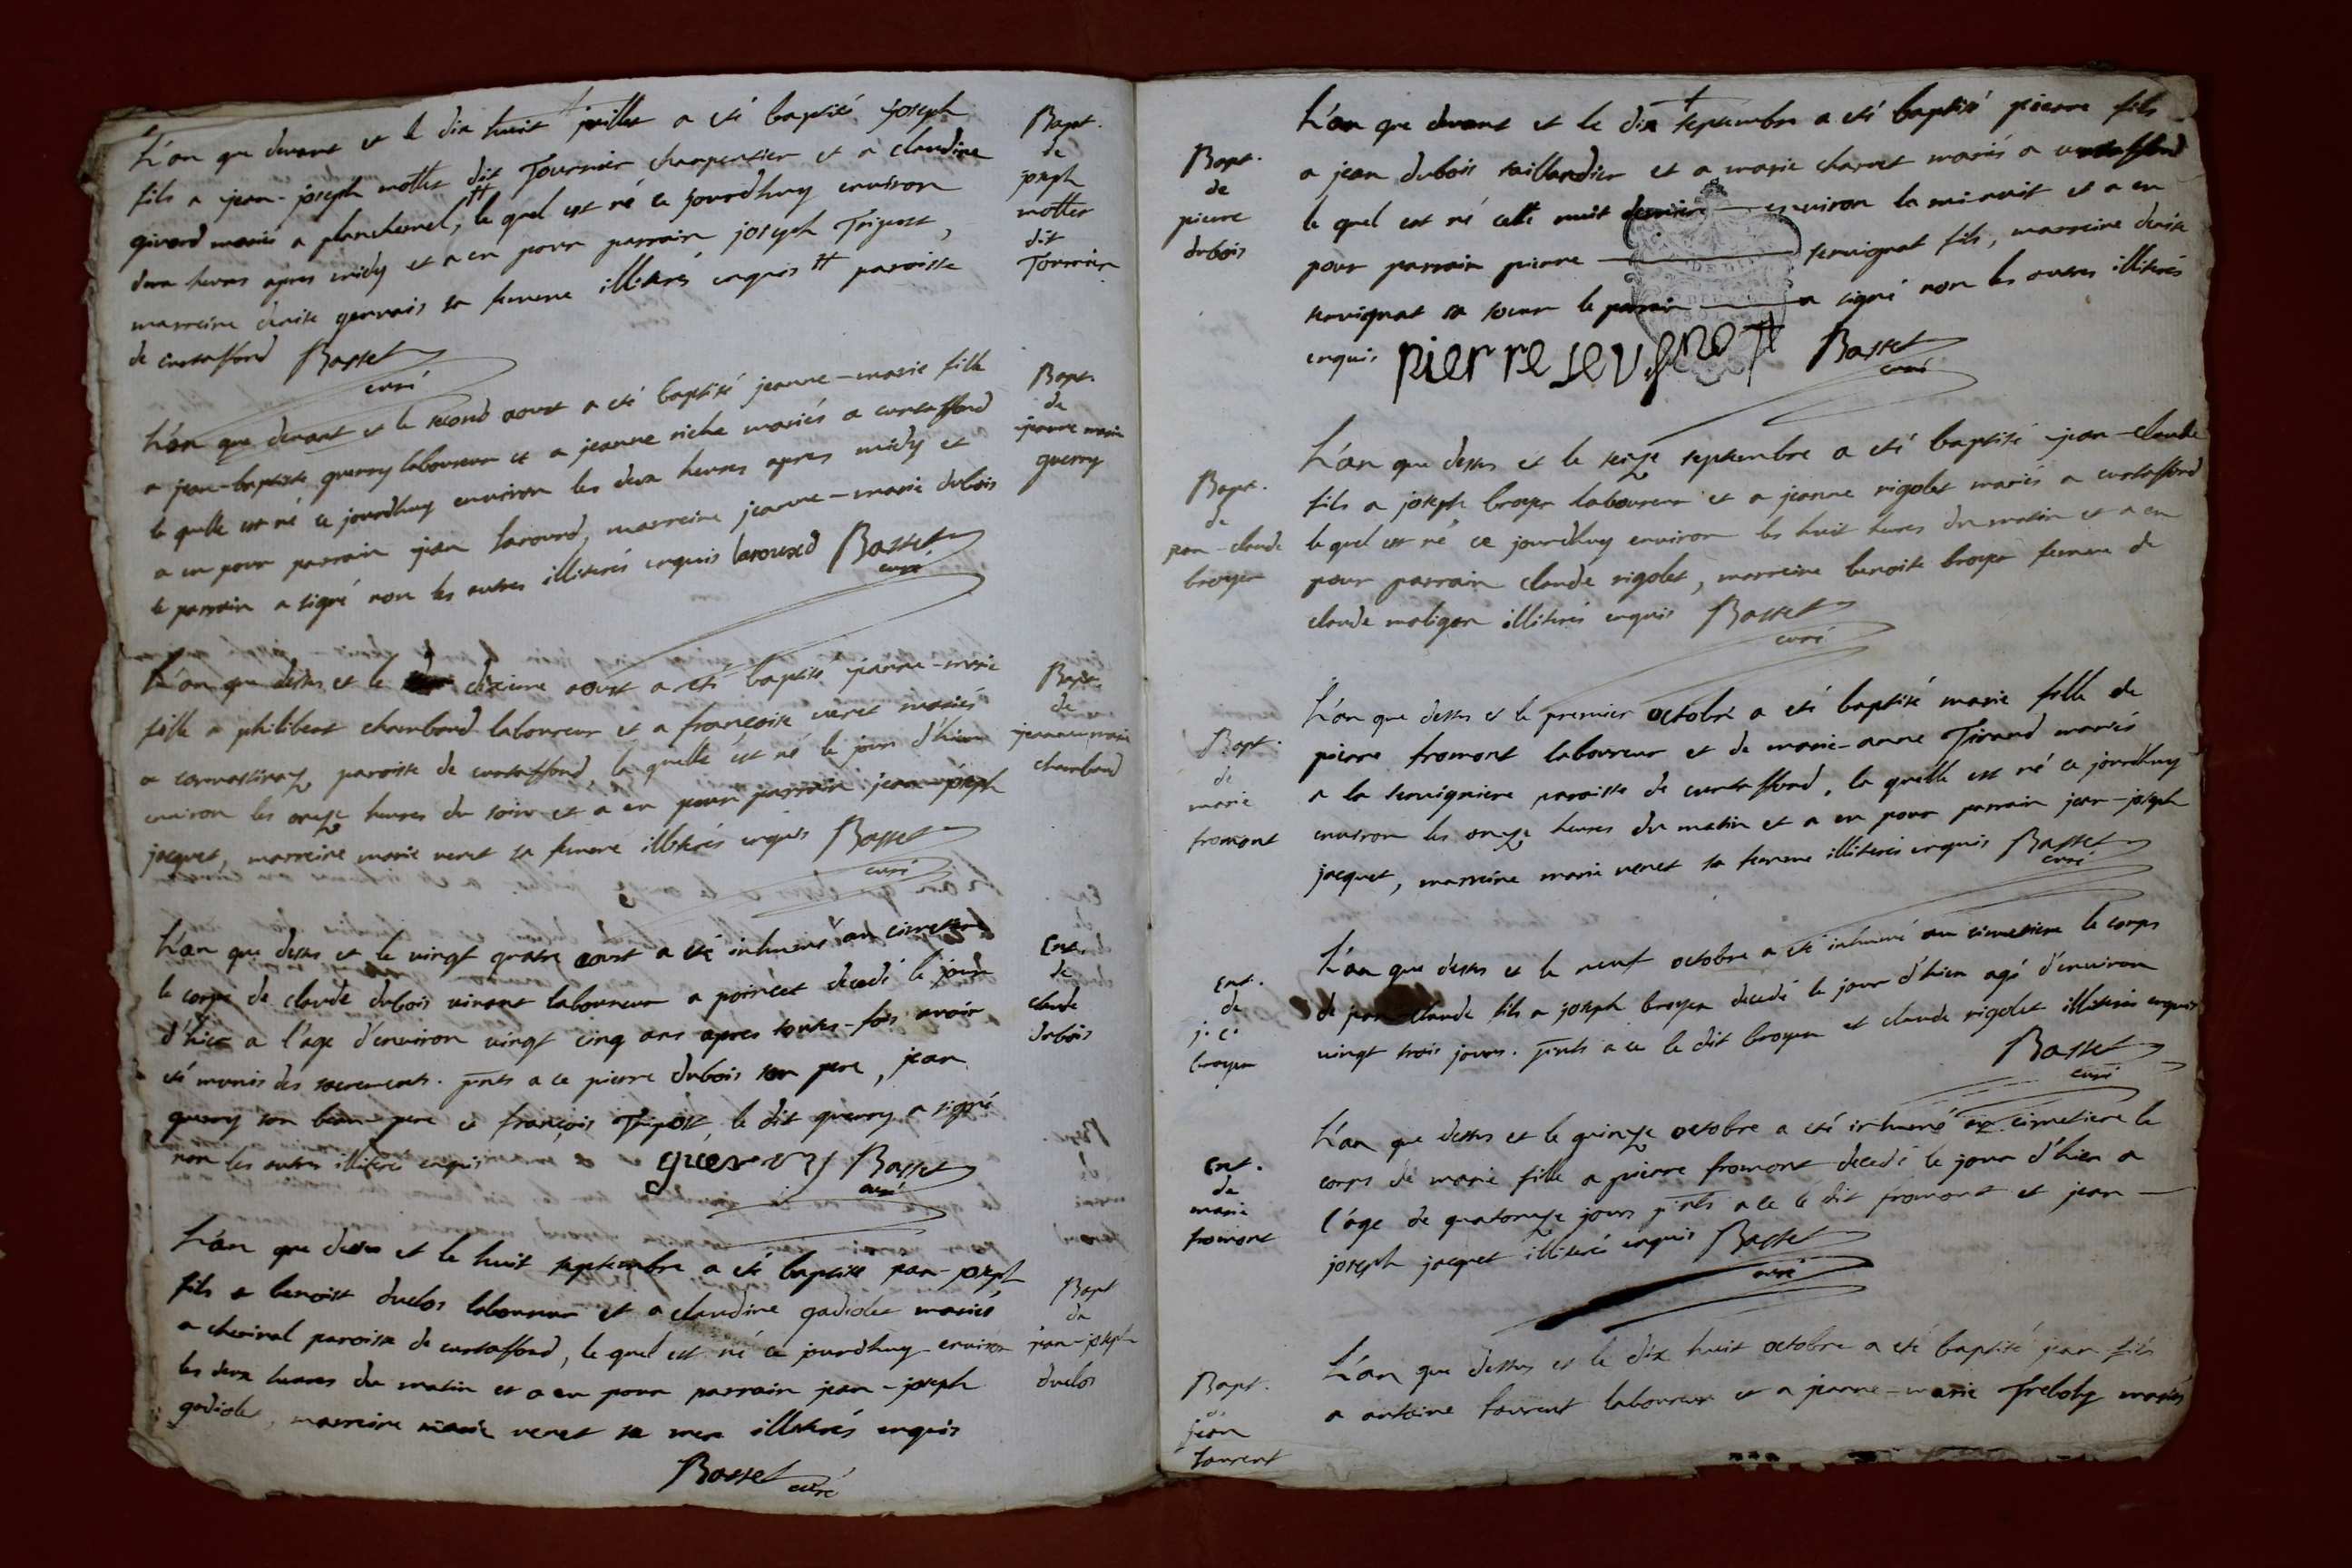 L'an que devant et le dix huit juillet a été baptisé joseph
fils a jean-joseph mottet dit Tournier charpentier et a claudine
givord mariés a plancheinel, le quel est né ce jourdhuy environ
deux heures apres midy et a eu pour parrain joseph Tripost,
marreine denise gervais sa femme illiterés enquis # paroisse
de curtaffond Basset
curé
Bapt.
de
joseph
mottet
dit
Tournier
L'an que devant et le second aoust a été baptisé jeanne-marie fille
a jean-baptiste guerry laboureur et a jeanne riche mariés a curtaffond
la quelle est né ce jourdhuy environ les deux heures apres midy et
a eu pour parrain jean larourd, marreine jeanne-marie dubois
le parrain a signé non les autres illiterés enquis larourd Basset
curé
Bapt.
de
jeanne marie
guerry
L'an que dessus et le dixieme aoust a eté baptisé jeanne-marie
fille a philibert chambard laboureur et a françoise veret mariés
a cormastiraz, paroisse de curtaffond, la quelle est né le jour d'hier
environ les onze heures du soir et a eu pour parrain jean-joseph
jacquet, marreine marie veret sa femme illiterés enquis Basset
curé
Bapt.
de
jeanne marie
chambard
L'an que dessus et le vingt quatre aoust a été inhumé au cimetiere
le corps de claude dubois vivant laboureur a poincet decedé le jour
d'hier a l'age d'environ vingt cinq ans apres toutes-fois avoir
eté munis des sacrements. pnts a ce pierre dubois son pere, jean
guerry son beau-pere et françois Tripost, le dit guerry a signé
non les autres illiterés enquis guerry Basset
curé
Ent.
de
claude
dubois
L'an que dessus et le huit septembre a été baptisé jean-joseph
fils a benoist duclos laboureur et a claudine gadiolet mariés
a cheviral paroisse de curtaffond, le quel est né ce jourdhuy environ
les deux heures du matin et a eu pour parrain jean-joseph
gadiolet, marreine marie veret sa mere illiterés enquis
Basset curé
Bapt
de
jean-joseph
duclos
L'an que devant et le dix septembre a été baptisé pierre fils
a jean dubois taillandier et a marie charvet mariés a curtaffond
le quel est né cette nuit derniere environ la minuit et a eu
pour parrain pierre servignat fils, marreine denise
servignat sa soeur le parrain a signé non les autres illiterés
enquis pierre sevignat Basset
curé
Bapt.
de
pierre
dubois
L'an que dessus et le seize septembre a été baptisé jean-claude
fils a joseph broyer laboureur et a jeanne rigolet mariés a curtaffond
le quel est né ce jourdhuy environ les huit heures du matin et a eu
pour parrain claude rigolet, marreine benoite broyer femme de
claude moligon illiterés enquis Basset
curé
Bapt.
de
jean-claude
broyer
L'an que dessus et le premier octobre a été baptisé marie fille de
pierre fromont laboureur et de marie-anne Tirand mariés
a la servigniere paroisse de curtaffond, la quelle est né ce jourdhuy
environ les onze heures du matin et a eu pour parrain jean-joseph
jacquet, marreine marie veret sa femme illiterés enquis Basset
curé
Bapt.
de
marie
fromont
L'an que dessus et le neuf octobre a été inhumé au cimetiere le corps
de jean-claude fils a joseph broyer decedé le jour d'hier agé d'environ
vingt trois jours. pnts a ce le dit broyer et claude rigolet illiterés enquis
Basset
curé
Ent.
de
j. c.
broyer
L'an que dessus et le quinze octobre a été inhumé au cimetiere le
corps de marie fille a pierre fromont decedé le jour d'hier a
l'âge de quatorze jours pnts a ce le dit fromont et jean
joseph jacquet illiteré enquis Basset
curé
Ent.
de
marie
fromont
L'an que dessus et le dix huit octobre a été baptisé jean fils
a antoine laurent laboureur et a jeanne-marie Treboly mariés
Bapt.
de
jean
laurent